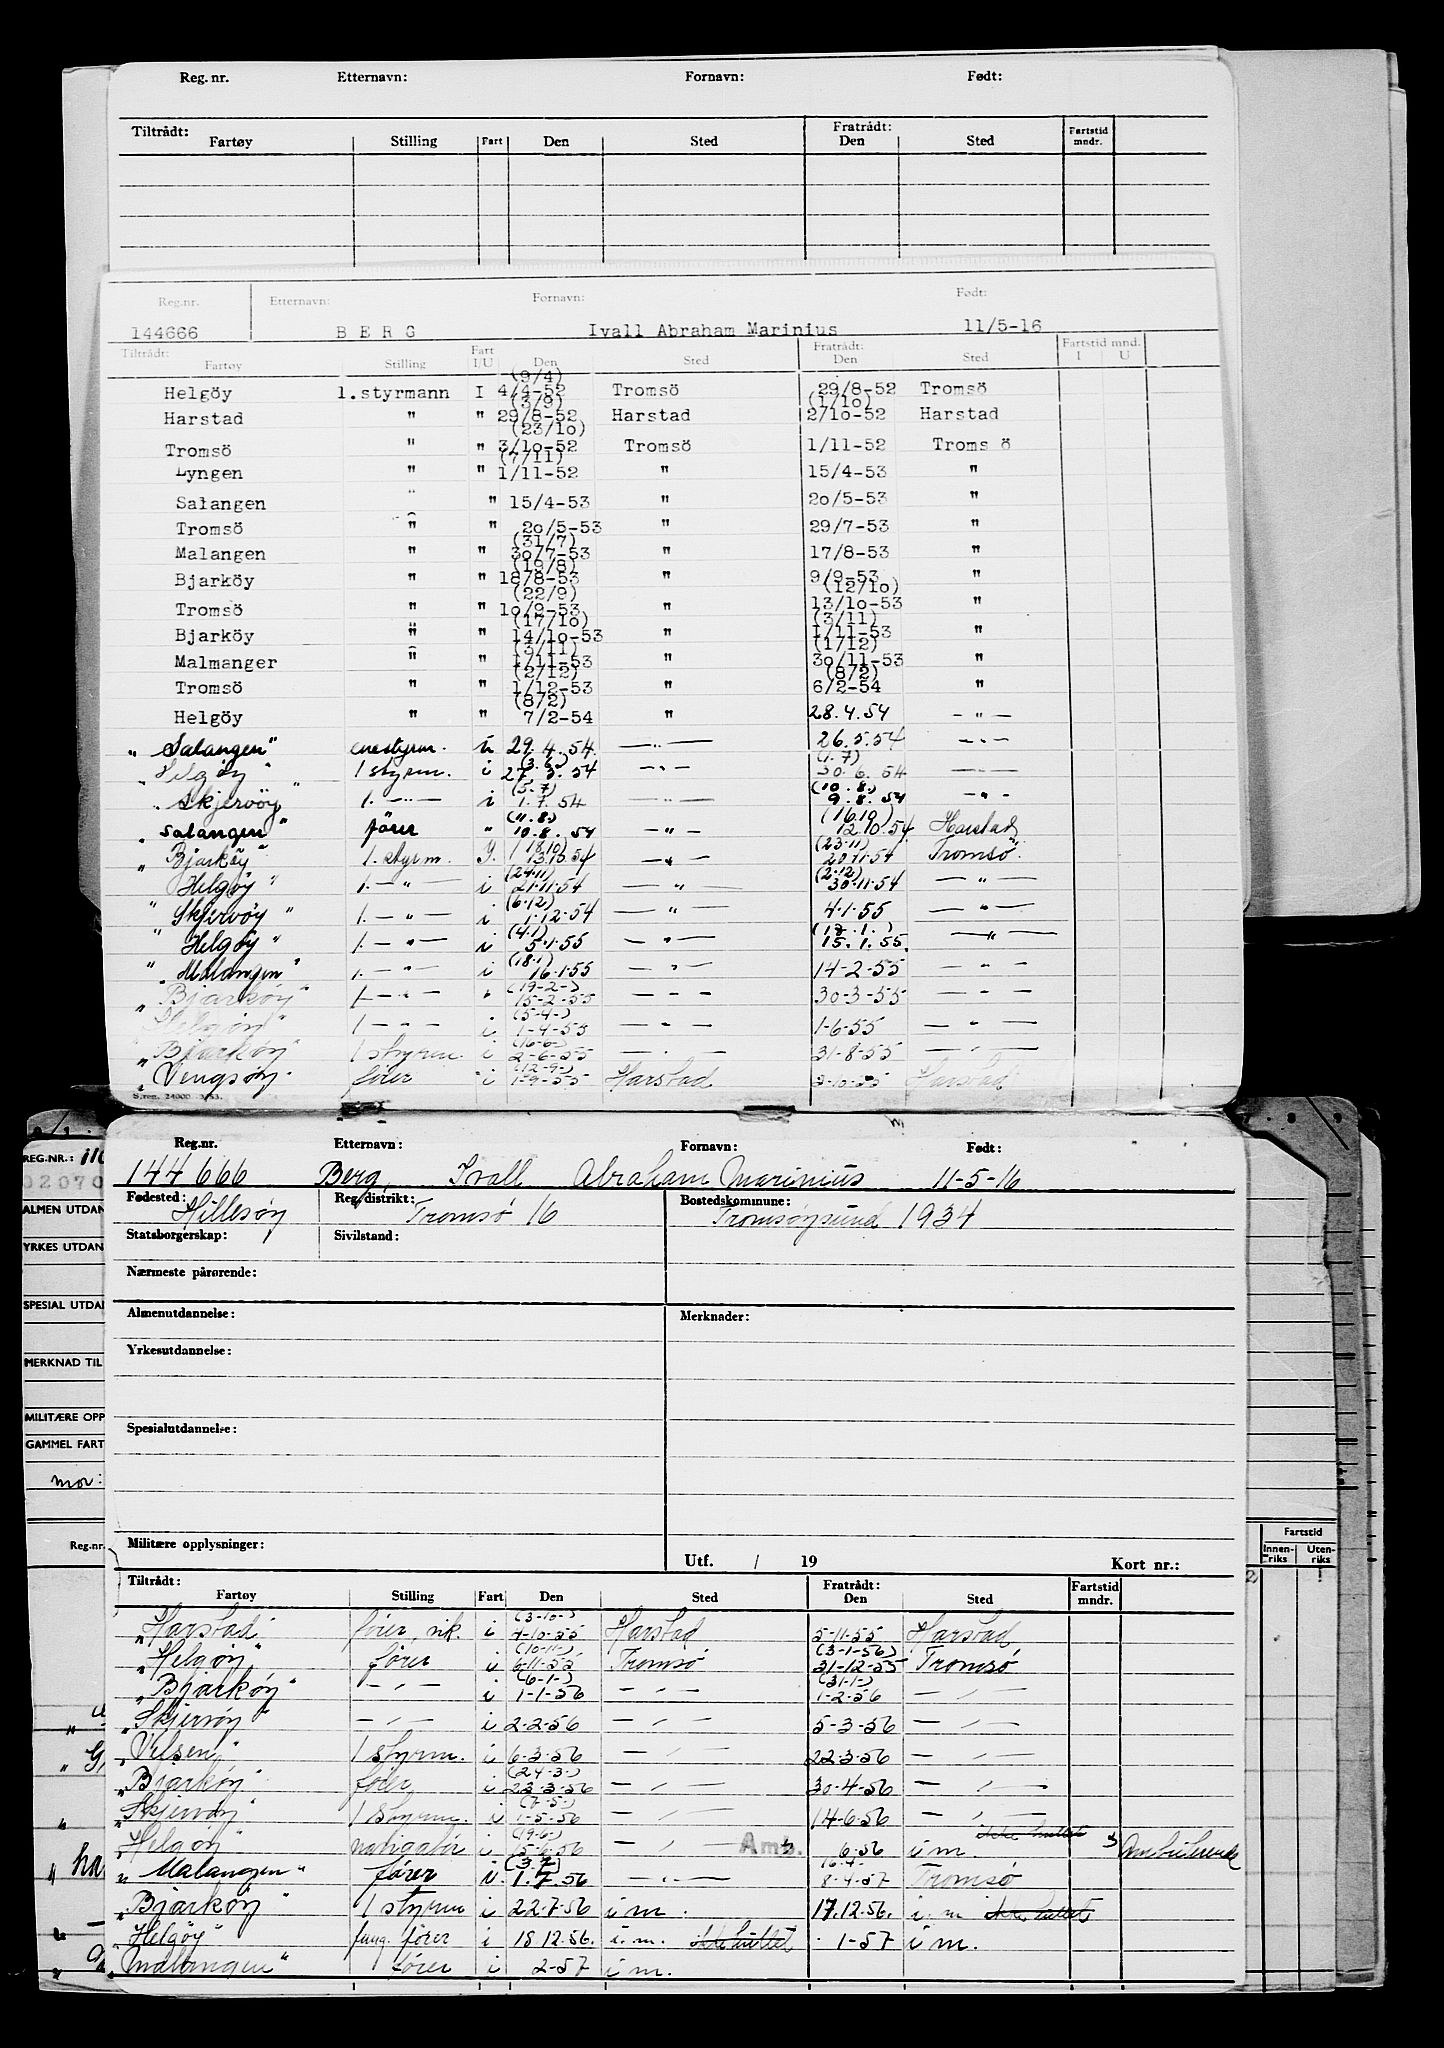 Reg. nr. Etternavn: Fornavn: Født:
Tiltrådt: Fratrådt: Fartstid
Fartøy Stilling Fart Den Sted Den Sted mndr.
Reg.nr. Etternavn: Fornavn: Født:
144666 BERG Ivall Abraham Marinius 11/5-16
Tiltrådt: Fart Fratrådt: Fartstid mnd.
Fartøy Stilling I/U Den Sted Den Sted I U
(9/4)
Helgöy 1.styrmann I 4/4-52 Tromsö 29/8-52 Tromsö
(3/9) (1/10)
Harstad " " 29/8-52 Harstad 2/10-52 Harstad
(23/10)
Tromsö " " 3/10-52 Tromsö 1/11-52 Troms ö
(7/11)
Lyngen " " 1/11-52 " 15/4-53 "
Salangen " " 15/4-53 " 20/5-53 "
Tromsö " " 20/5-53 " 29/7-53 "
(31/7)
Malangen " " 30/7-53 " 17/8-53 "
(19/8)
Bjarköy " " 18/8-53 " 9/9-53 "
(22/9) (12/10)
Tromsö " " 10/9-53 " 13/10-53 "
(17/10) (3/11)
Bjarköy " " 14/10-53 " 1/11-53 "
(3/11) (1/12)
Malmanger " " 1/11-53 " 30/11-53 "
(2/12) (8/2)
Tromsö " " 1/12-53 " 6/2-54 "
(8/2)
Helgöy " " 7/2-54 " 28.4.54 — " —
" Salangen" enestyrm. i 29.4.54 — " — 26.5.54 — " —
(3.6.) (1.7)
" Helgöy " 1 styrm. i 27.5.54 — " — 30.6.54 — " —
(5.7) (10.8.)
" Skjervöy " 1. — " — i 1.7.54 — " — 9.8.54 — " —
(11.8.) (16.10)
" Salangen " förer " 10.8.54 — " — 12.10.54 Harstad
(18.10) (23.11)
" Bjarköy " 1. styrm. 13.10.54 — " — 20.11.54 Tromsö
(24.11) (2.12)
Helgöy " 1. — " — i 21.11.54 — " — 30.11.54 — " —
(6.12)
" Skjervöy " 1. — " — i 1.12.54 — " — 4.1.55 — " —
(4.1) (18.1.)
" Helgöy " 1. — " — i 5.1.55 — " — 15.1.55. — " —
(18.1)
" Malangen " 1. — " — i 16.1.55 — " — 14-2-55 — " —
(19-2-)
" Bjarköy " 1 — " — " 15-2-55 — " — 30-3-55 — " —
(5-4-)
Helgöy " 1 — " — i 1-4-55 — " — 1-6-55 — " —
(16-6-)
" Bjarköy " 1 styrm. i 2-6-55 — " — 31-8-55 — " —
(12-9-)
" Vengsöy " förer i 1-9-55 Harstad 3-10-55 Harstad
S.reg. 24000 3/53.
Reg.nr. Etternavn: Fornavn: Født:
144666 Berg, Ivall Abraham Marinius 11-5-16
Fødested: Reg.distrikt: Bostedskommune:
Hillesøy Tromsø 16 Tromsøysund 1934
Statsborgerskap: Sivilstand:
Nærmeste pårørende:
Almenutdannelse: Merknader:
Yrkesutdannelse:
Spesialutdannelse:
Militære opplysninger:
Utf. / 19 Kort nr.:
Tiltrådt: Fratrådt: Fartstid
Fartøy Stilling Fart Den Sted Den Sted mndr.
(3-10-)
" Harstad " fører, vik. i 4-10-55 Harstad 5-11-55 Harstad
(10-11-) (3-1-56)
" Helgöy " fører i 6-11-55 Tromsø 31-12-55 Tromsø
(6-1-) (31-1-)
" Bjarköy " — " — i 1-1-56 — " — 1-2-56 — " —
" Skjervöy " — " — i 2-2-56 — " — 5-3-56 — " —
" Vilsen " 1 styrm. i 6-3-56 — " — 22-3-56 — " —
(24-3-)
" Bjarköy " fører i 23-3-56 — " — 30-4-56 — " —
(7-5-)
" Skjervöy " 1 styrm. i 1-5-56 — " — 14-6-56 — " —
(19-6-) ikke hullet
" Helgöy " navigatör i 15-6-56 — " — Amb. 6.56 i m. Ambulerende
(3.7) 16.4.
" Malangen " fører i 1.7.56 — " — 8-4-57 Tromsø
" Bjarköy " 1 styrm i 22-7-56 i m. 17.12.56. i. m ikke hullet
" Helgöy " fung. fører i 18 12.56. i. m. ikke hullet 1-57 i m.
" Malangen " fører i 2-57 i m.
REG.NR.: 110
02070
ALMEN UTDAN
YRKES UTDAN
SPESIAL UTDAN
MERKNAD TIL
MILITÆRE OPP
GAMMEL FART
mor:
Reg.nr.
Fartstid
Innen-riks Uten-riks